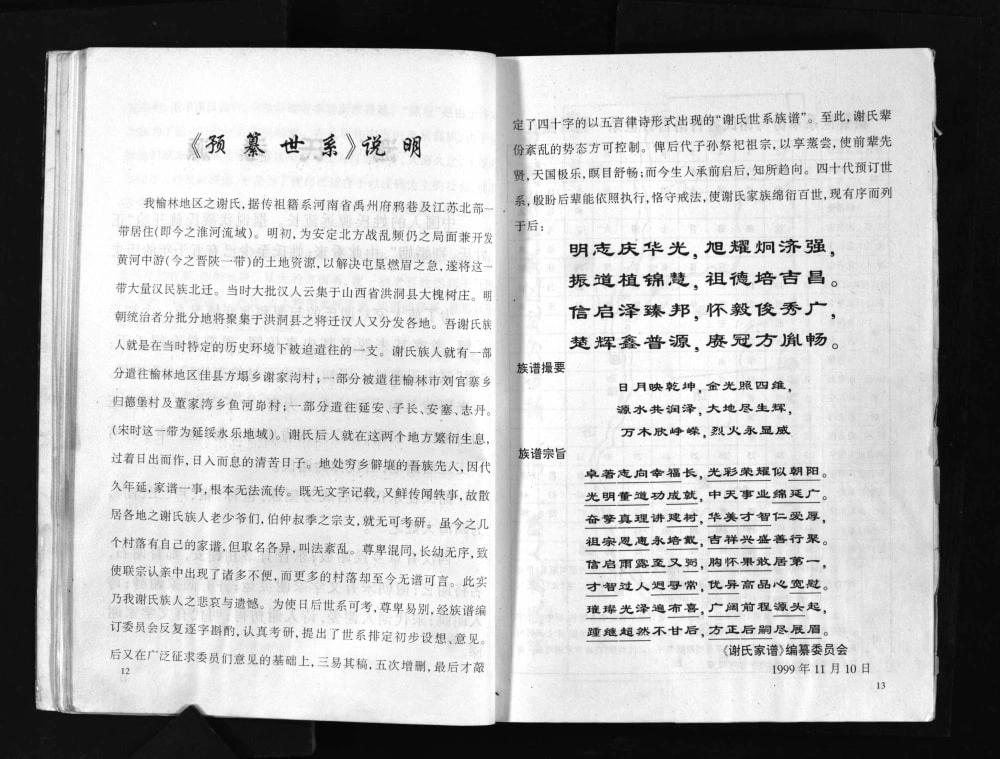 《预纂世系》说明
我榆林地区之谢氏,据传祖籍系河南省禹州府鸦巷及江苏北部一
带居住(即今之淮河流域)。明初,为安定北方战乱频仍之局面兼开发
黄河中游(今之晋陕一带)的土地资源,以解决屯垦燃眉之急,遂将这一
带大量汉民族北迁。当时大批汉人云集于山西省洪洞县大槐树庄。明
朝统治者分批分地将聚集于洪洞县之将迁汉人又分发各地。吾谢氏族
人就是在当时特定的历史环境下被迫遣往的一支。谢氏族人就有一部
分遣往榆林地区佳县方塌乡谢家沟村;一部分被遣往榆林市刘官寨乡
归德堡村及董家湾乡鱼河峁村;一部分遣往延安、子长、安塞、志丹。
(宋时这一带为延绥永乐地域)。谢氏后人就在这两个地方繁衍生息,
过着日出而作,日入而息的清苦日子。地处穷乡僻壤的吾族先人,因代
久年延,家谱一事,根本无法流传。既无文字记载,又鲜传闻轶事,故散
居各地之谢氏族人老少爷们,伯仲叔季之宗支,就无可考研。虽今之几
个村落有自己的家谱,但取名各异,叫法紊乱。尊卑混同,长幼无序,致
使联宗认亲中出现了诸多不便,而更多的村落却至今无谱可言。此实
乃我谢氏族人之悲哀与遗憾。为使日后世系可考,尊卑易别,经族谱编
订委员会反复逐字斟酌,认真考研,提出了世系排定初步设想、意见。
后又在广泛征求委员们意见的基础上,三易其稿,五次增删,最后才敲
12
定了四十字的以五言律诗形式出现的“谢氏世系族谱”。至此,谢氏辈
份紊乱的势态方可控制。俾后代子孙祭祀祖宗,以享蒸尝,使前辈先
贤,天国极乐,瞑目舒畅;而今生人承前启后,知所趋向。四十代预订世
系,殷盼后辈能依照执行,恪守戒法,使谢氏家族绵衍百世,现有序而列
于后:
明志庆华光,旭耀炯济强,
振道植锦慧,祖德培吉昌。
信启泽臻邦,怀毅俊秀广,
楚辉鑫普源,赓冠方胤畅。
族谱撮要
日月映乾坤,金光照四维,
源水共润泽,大地尽生辉,
万木欣峥嵘,烈火永显威
族谱宗旨
卓著志向幸福长,光彩荣耀似朝阳。
光明董道功成就,中天事业绵延广。
奋擎真理讲建树,华美才智仁爱厚,
祖宗恩惠永培戴,吉祥兴盛善行聚。
信启雨露至又弼,胸怀果敢居第一,
才智过人迥寻常,优异高品心宽慰。
璀璨光泽遍布喜,广阔前程源头起,
踵继超然不甘后,方正后嗣尽展眉。
《谢氏家谱》编纂委员会
1999年11月10日
13